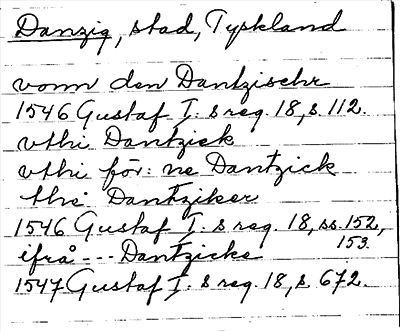 Danzig, stad, Tyskland
vonn den Dantzischr
1546 Gustaf I:s reg. 18, s. 112.
vthi Dantzick
vthi för:ne Dantzick
the Dantziker
1546 Gustaf I:s reg. 18, ss. 152,
153.
ifrå --- Dantzicke
1547 Gustaf I:s reg. 18, s. 672.